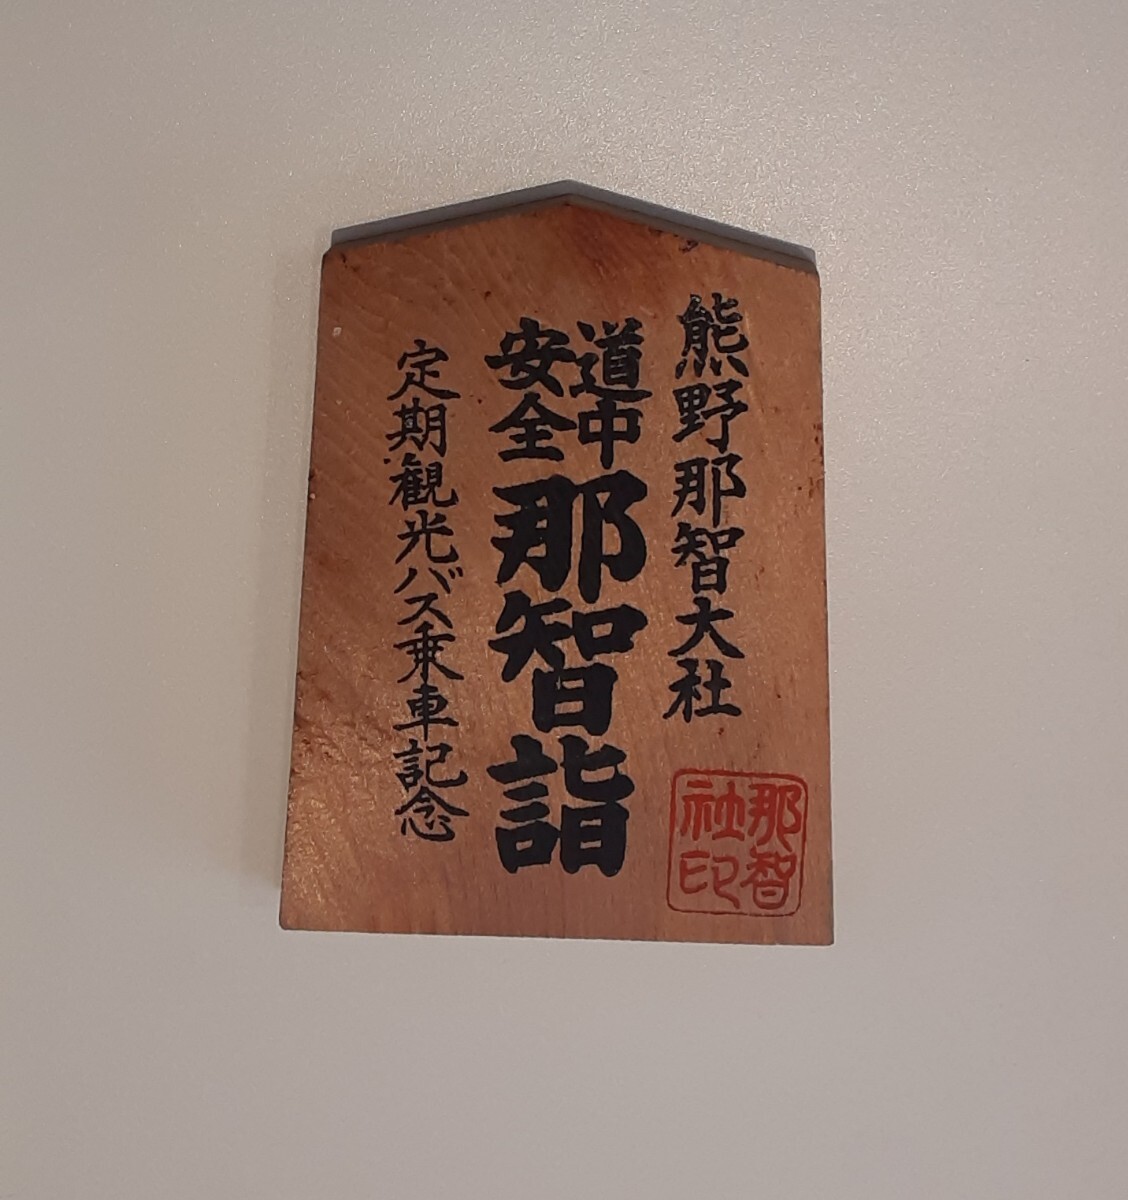 熊野那智大社
道中
安全
那智詣
定期観光バス乗車記念
那智
社印